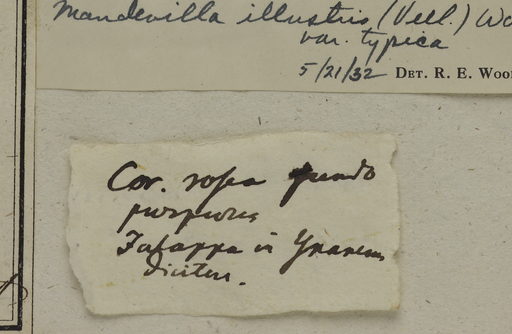 Mandevilla illustris (Vell.) Wo
var. typica
5/21/32 DET. R. E. WOO
Cor. rosea fundo
purpureo
Jalappa in
dicitur.